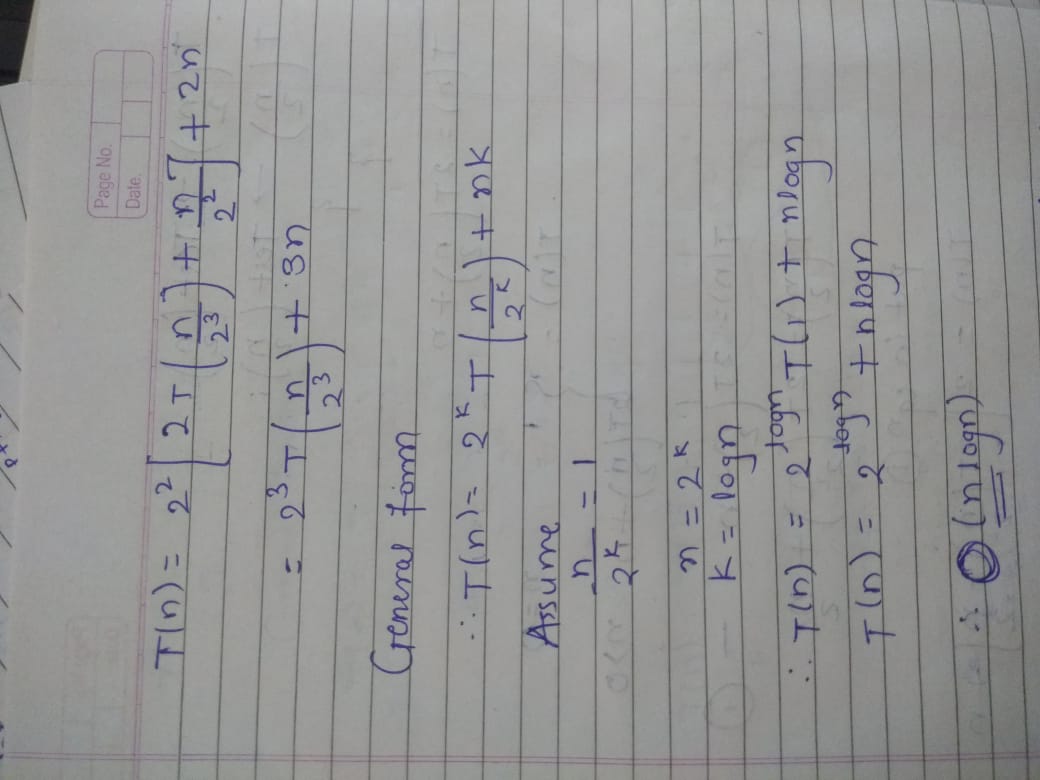 Page No.
Date.
T(n) = 2² [2T(n/2³) + n/2²] + 2n
= 2³T(n/2³) + 3n
General form
∴ T(n) = 2ᵏ T(n/2ᵏ) + nk
Assume
n/2ᵏ = 1
n = 2ᵏ
k = logn
∴ T(n) = 2^logn T(1) + nlogn
T(n) = 2^logn + nlogn
∴ O(nlogn)